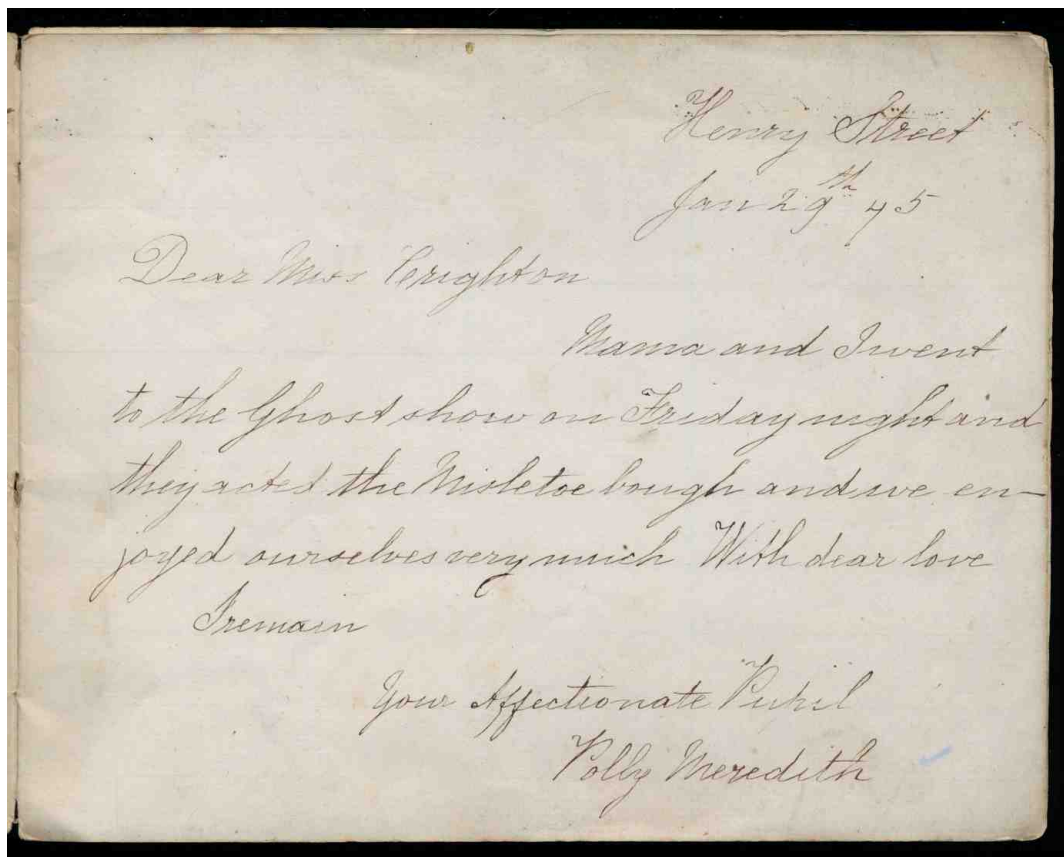 Henry Street
Jan 29th 75
Dear Miss Creighton
Mama and I went
to the Ghost show on Friday night and
they acted the Misletoe bough and we en-
joyed ourselves very much With dear love
I remain
Your Affectionate Pupil
Polly Meredith